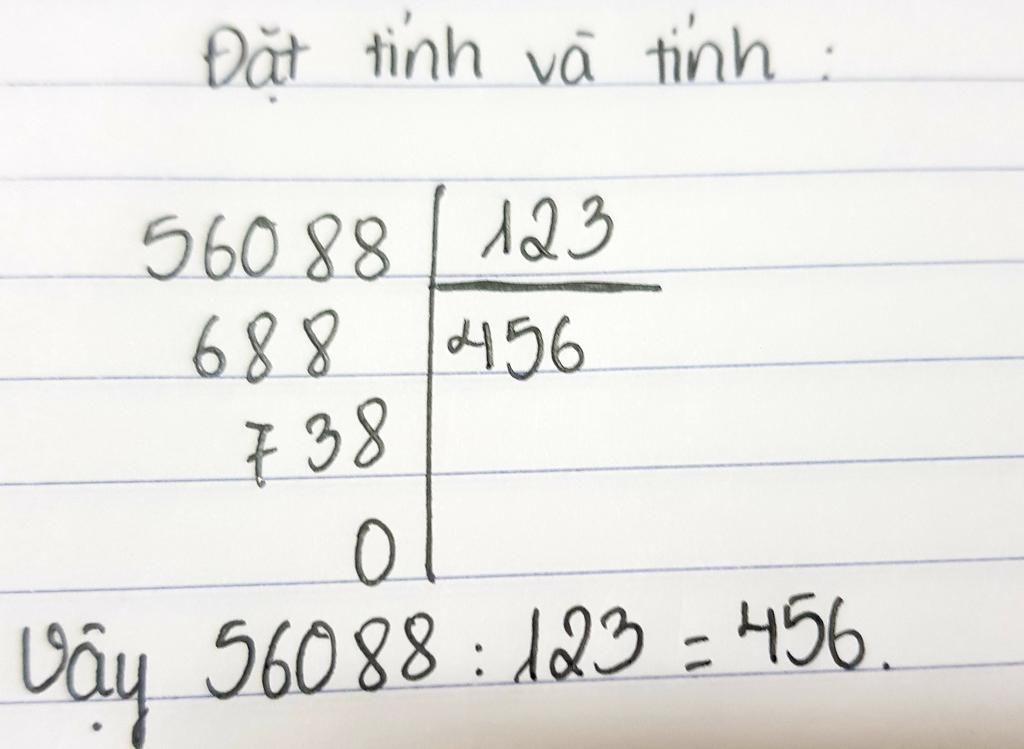 Đặt tính và tính :
56088 | 123
688 | 456
738
0
Vậy 56088 : 123 = 456.